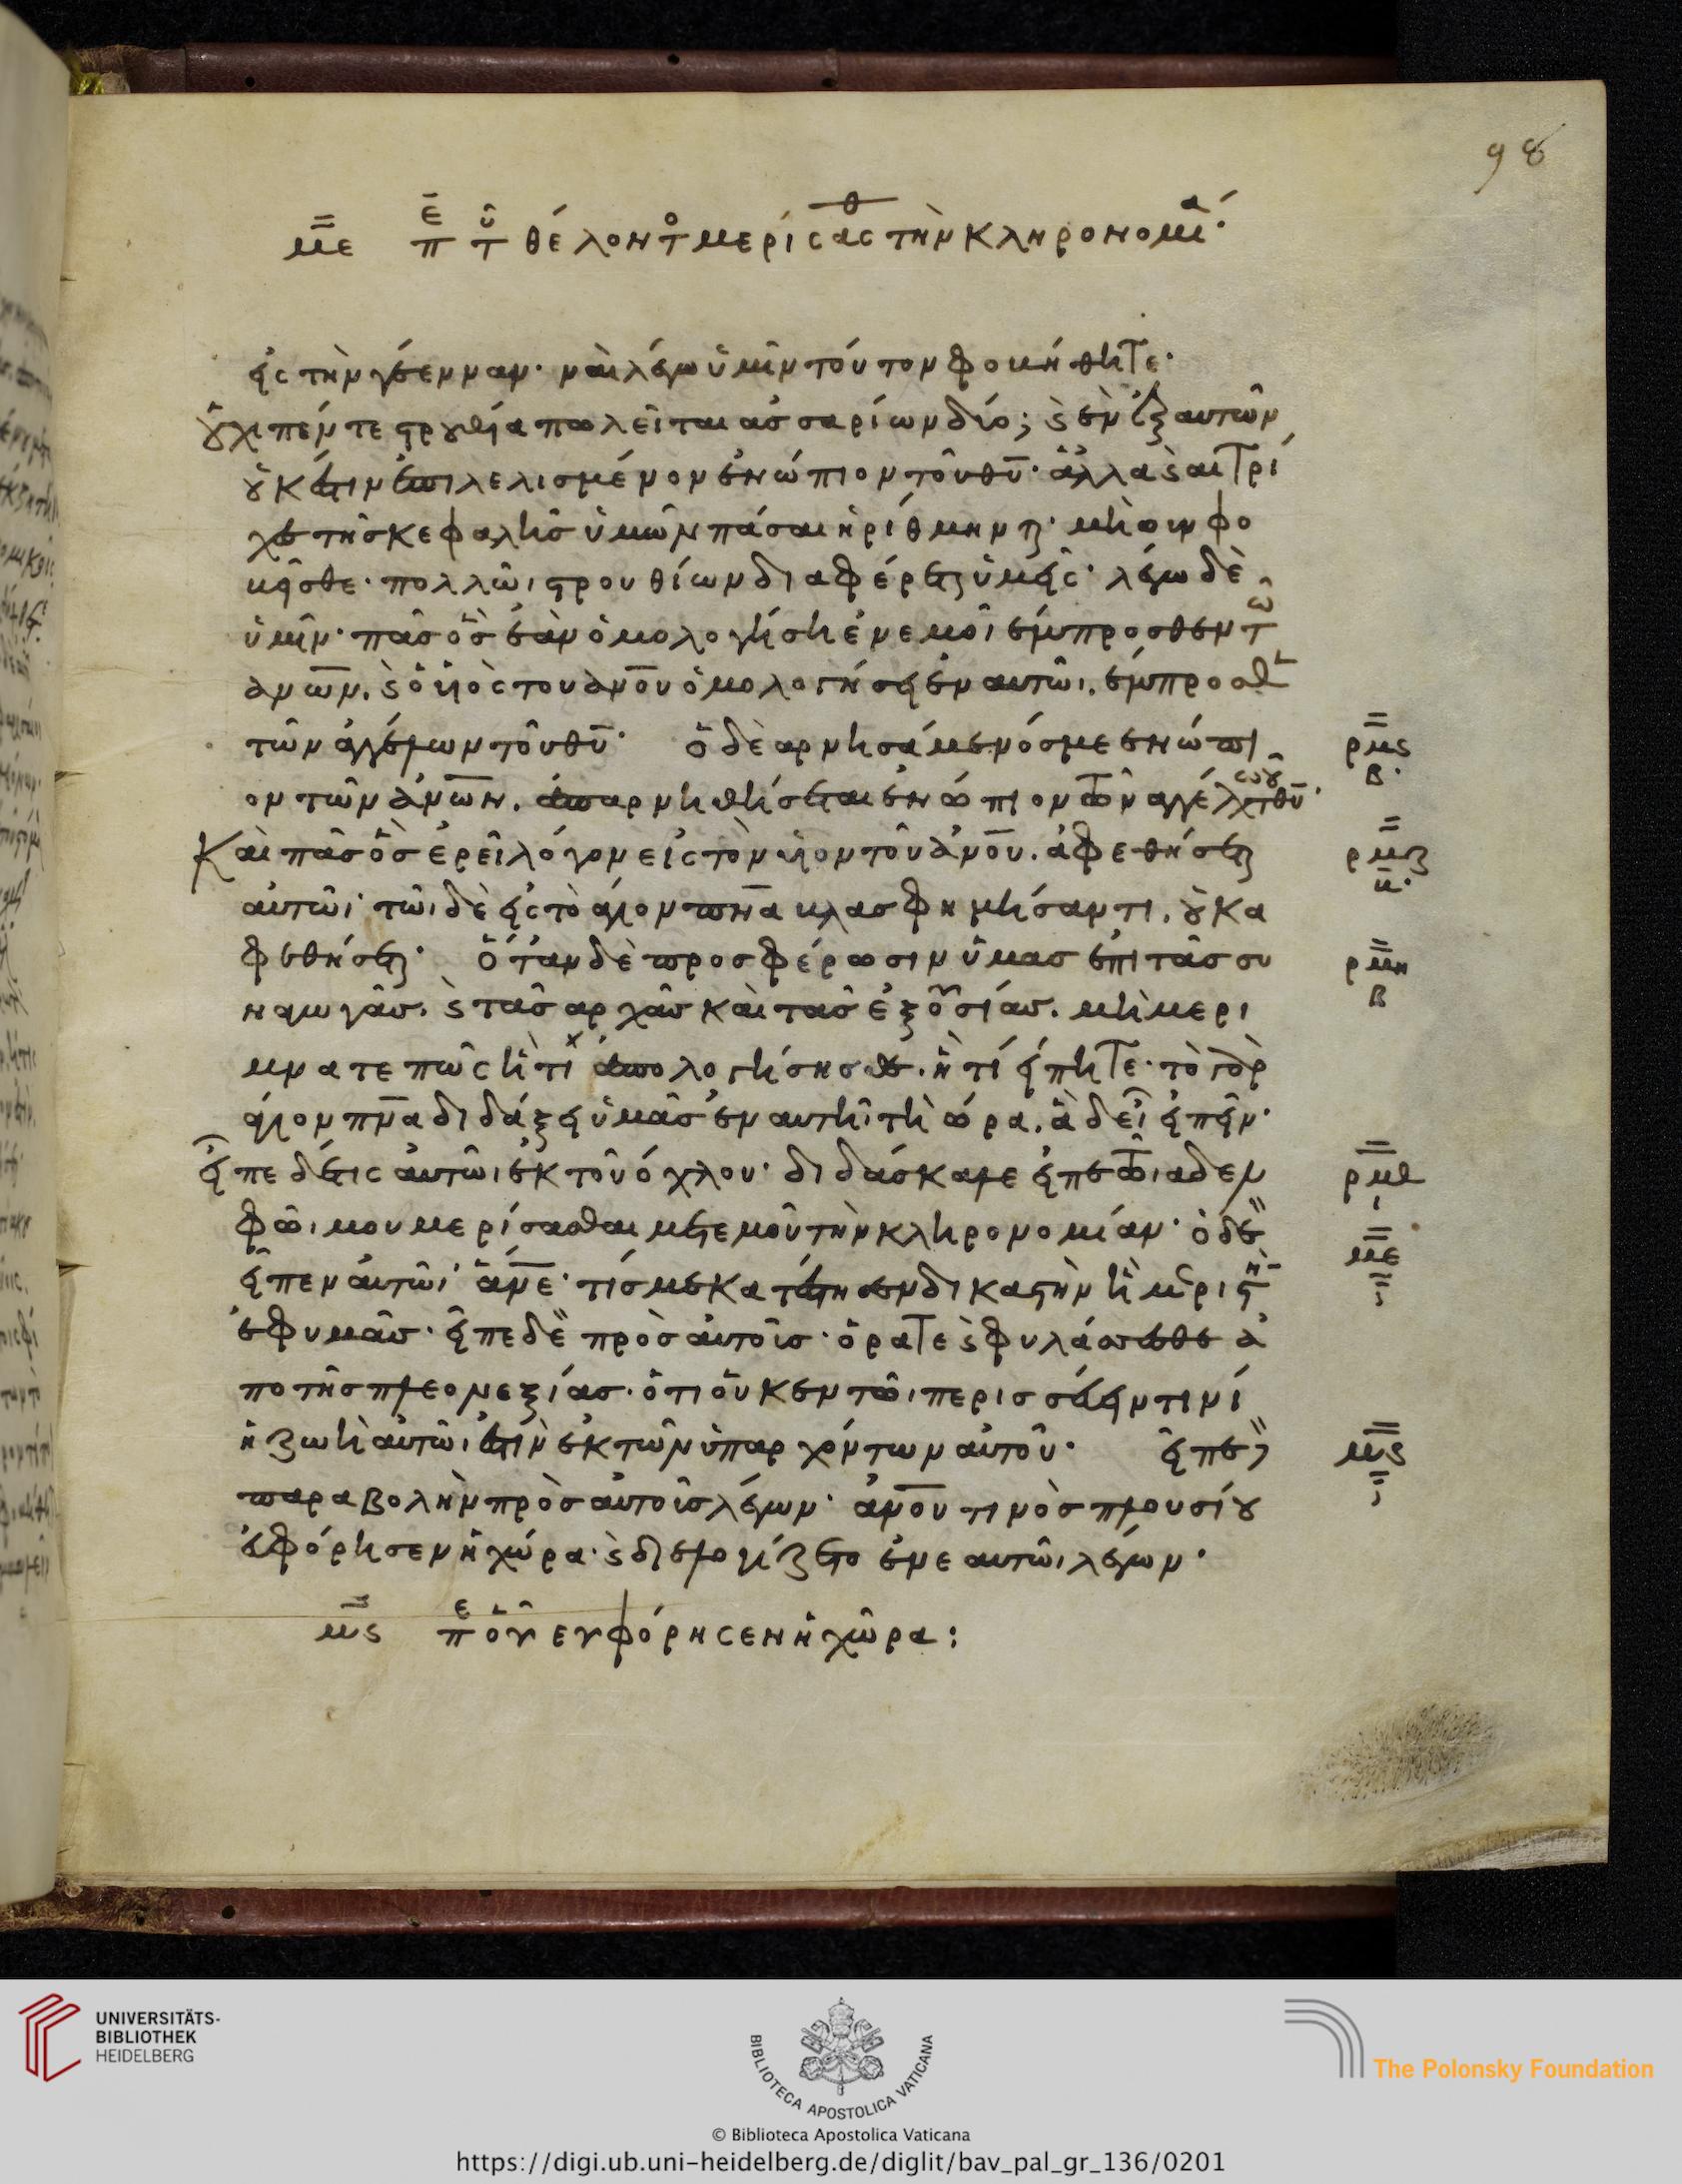 98
με πε τοῦ θέλοντο μερίσασθ τὴν κληρονομία
εἰς τὴν γέενναν· ναὶ λέγω ὑμῖν τοῦτον φοβήθητε·
οὐχὶ πέντε στρουθία πωλεῖται ἀσσαρίων δύο; ϛ ἓν ἐξ αυτῶν
οὐκ ἔστιν ἐπιλελισμένον ἐνώπιον τοῦ θῦ· ἀλλα ϛ αι τρί
χες τῆς κεφαλῆς ὑμῶν πάσαι ἠρίθμηνται· μὴ οὖν φο
βεῖσθε· πολλῶι στρουθίων διαφέρεται ὑμεῖς· λέγω δὲ
ὑμῖν· πᾶς ὃς ἐὰν ὁμολογήση ἐν ἐμοὶ ἔμπροσθεν τῶ
ἀνων, ϛ ὁ υἱὸς του ἀνου ὁμολογήσει ἐν αυτῶι, ἔμπροσθ
τῶν ἀγγέλων τοῦ θῦ· ὁ δὲ αρνησάμενός με ἐνώπι
ον τῶν ἀνων, ἀπαρνηθήσεται ἐνώπιον τῶν αγγέλων τοῦ θῦ·
Καὶ πᾶς ὃς ἐρεῖ λόγον εἰς τὸν υἱον τοῦ ἀνου, ἀφεθήσεται
αὐτῶι· τῶι δὲ εἰς τὸ ἅγιον πνα βλασφημήσαντι, οὐκ α
φεθήσεται· Ὅταν δὲ προσφέρωσιν ὑμας ἐπὶ τὰς συ
ναγωγὰς, ϛ τὰς αρχὰς καὶ τὰς ἐξουσίας, μὴ μερι
μνατε πῶς ἢ τί ἀπολογήσησθε, ἢ τί είπητε· τὸ γὰρ
άγιον πνα διδάξει ὑμᾶς ἐν αυτῆ τῆ ὥρα, ἃ δεῖ εἰπεῖν·
εἶπε δέ τις ἀυτῶι ἐκ τοῦ όχλου· διδάσκαλε εἰπὲ τῶι αδελ
φῶι μου μερίσασθαι μετ εμοῦ τὴν κληρονομίαν· ὁ δὲ
εἶπεν ἀυτῶι· ἄνε· τίς με κατέστησεν δικαστὴν ἢ μεριστὴν
ἐφ υμᾶς· εἶπε δὲ πρὸς ἀυτοὺς· ὁρατε ϛ φυλάσσεσθε ἀ
πο τῆς πλεονεξίας· ὅτι οὐκ εν τῶι περισσέυειν τινί
ἡ ζωὴ αὐτῶι ἐστὶν ἐκ τῶν ὑπαρχόντων αὐτοῦ· εἶπε δὲ
παραβολὴν πρὸς αὐτοὺς λέγων· ἀνου τινὸς πλουσίου
ἐυφόρησεν ἡ χώρα· ϛ διελογίζετο ἐν ἐαυτῶι λέγων·
μϛ πε οὗ ευφόρησεν ἡ χῶρα:
ρμϛ
β
ρμζ
β
ρμη
β
ρμθ
ι
με
ι
μϛ
ι
UNIVERSITÄTS-
BIBLIOTHEK
HEIDELBERG
BIBLIOTECA APOSTOLICA VATICANA
The Polonsky Foundation
© Biblioteca Apostolica Vaticana
https://digi.ub.uni-heidelberg.de/diglit/bav_pal_gr_136/0201